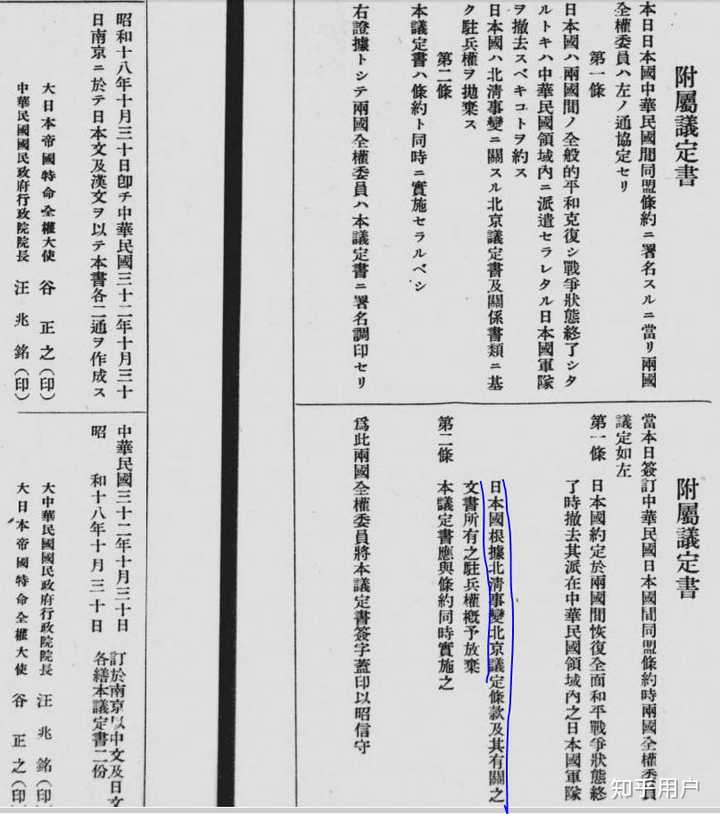 附屬議定書
本日日本國中華民國間同盟條約ニ署名スルニ當リ兩國
全權委員ハ左ノ通協定セリ
第一條
日本國ハ兩國間ノ全般的平和克復シ戰爭狀態終了シタ
ルトキハ中華民國領域內ニ派遣セラレタル日本國軍隊
ヲ撤去スベキコトヲ約ス
日本國ハ北淸事變ニ關スル北京議定書及關係書類ニ基
ク駐兵權ヲ拋棄ス
第二條
本議定書ハ條約ト同時ニ實施セラルベシ
右證據トシテ兩國全權委員ハ本議定書ニ署名調印セリ
昭和十八年十月三十日卽チ中華民國三十二年十月三十
日南京ニ於テ日本文及漢文ヲ以テ本書各二通ヲ作成ス
大日本帝國特命全權大使 谷 正之(印)
中華民國國民政府行政院院長 汪兆銘(印)
附屬議定書
當本日簽訂中華民國日本國間同盟條約時兩國全權委員
議定如左
第一條 日本國約定於兩國間恢復全面和平戰爭狀態終
了時撤去其派在中華民國領域內之日本國軍隊
日本國根據北淸事變北京議定條款及其有關之
文書所有之駐兵權槪予放棄
第二條 本議定書應與條約同時實施之
爲此兩國全權委員將本議定書簽字蓋印以昭信守
中華民國三十二年十月三十日
昭和十八年十月三十日
訂於南京以中文及日文
各繕本議定書二份
大中華民國國民政府行政院院長 汪兆銘(印)
大日本帝國特命全權大使 谷 正之(印)
知乎用户